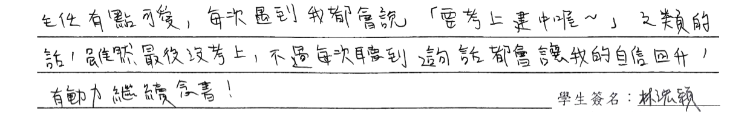 主任有點可愛，每次遇到我都會說「要考上建中喔~」之類的
話，雖然最後沒考上，不過每次聽到這句話都會讓我的自信回升，
有動力繼續念書！
學生簽名：林